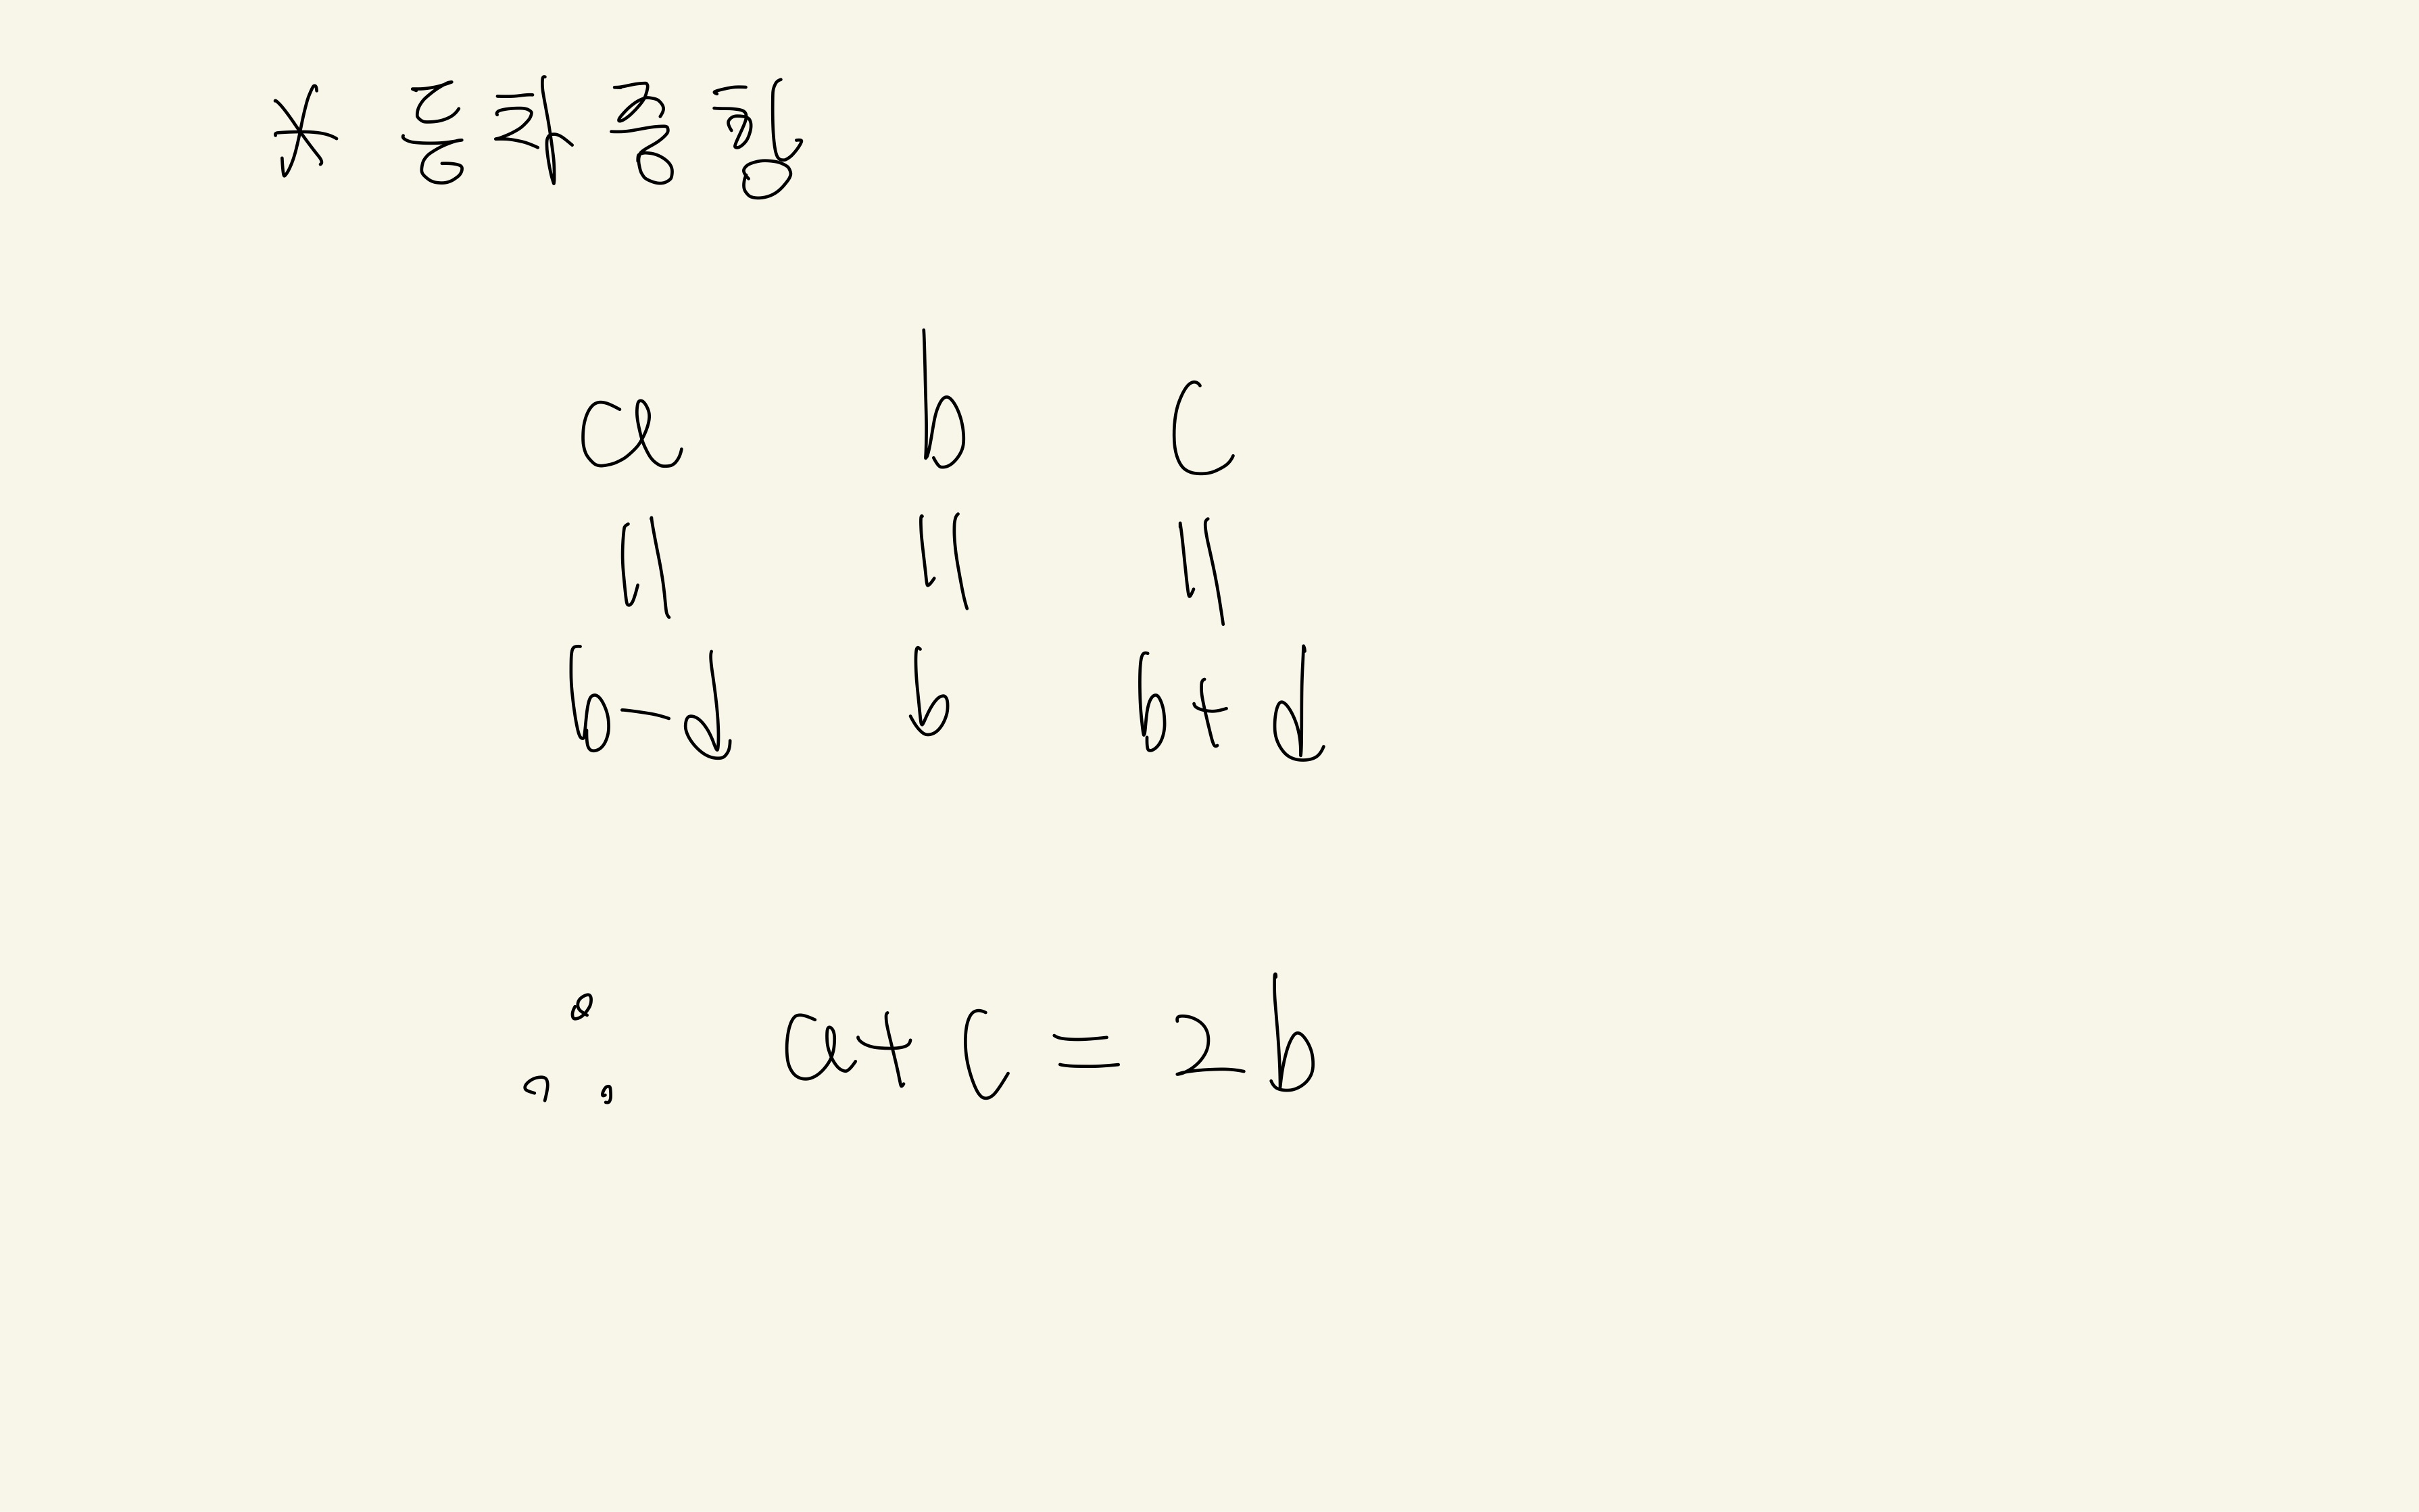 * 등차중항
a b c
|| || ||
b-d b b+d
∴ a+c=2b